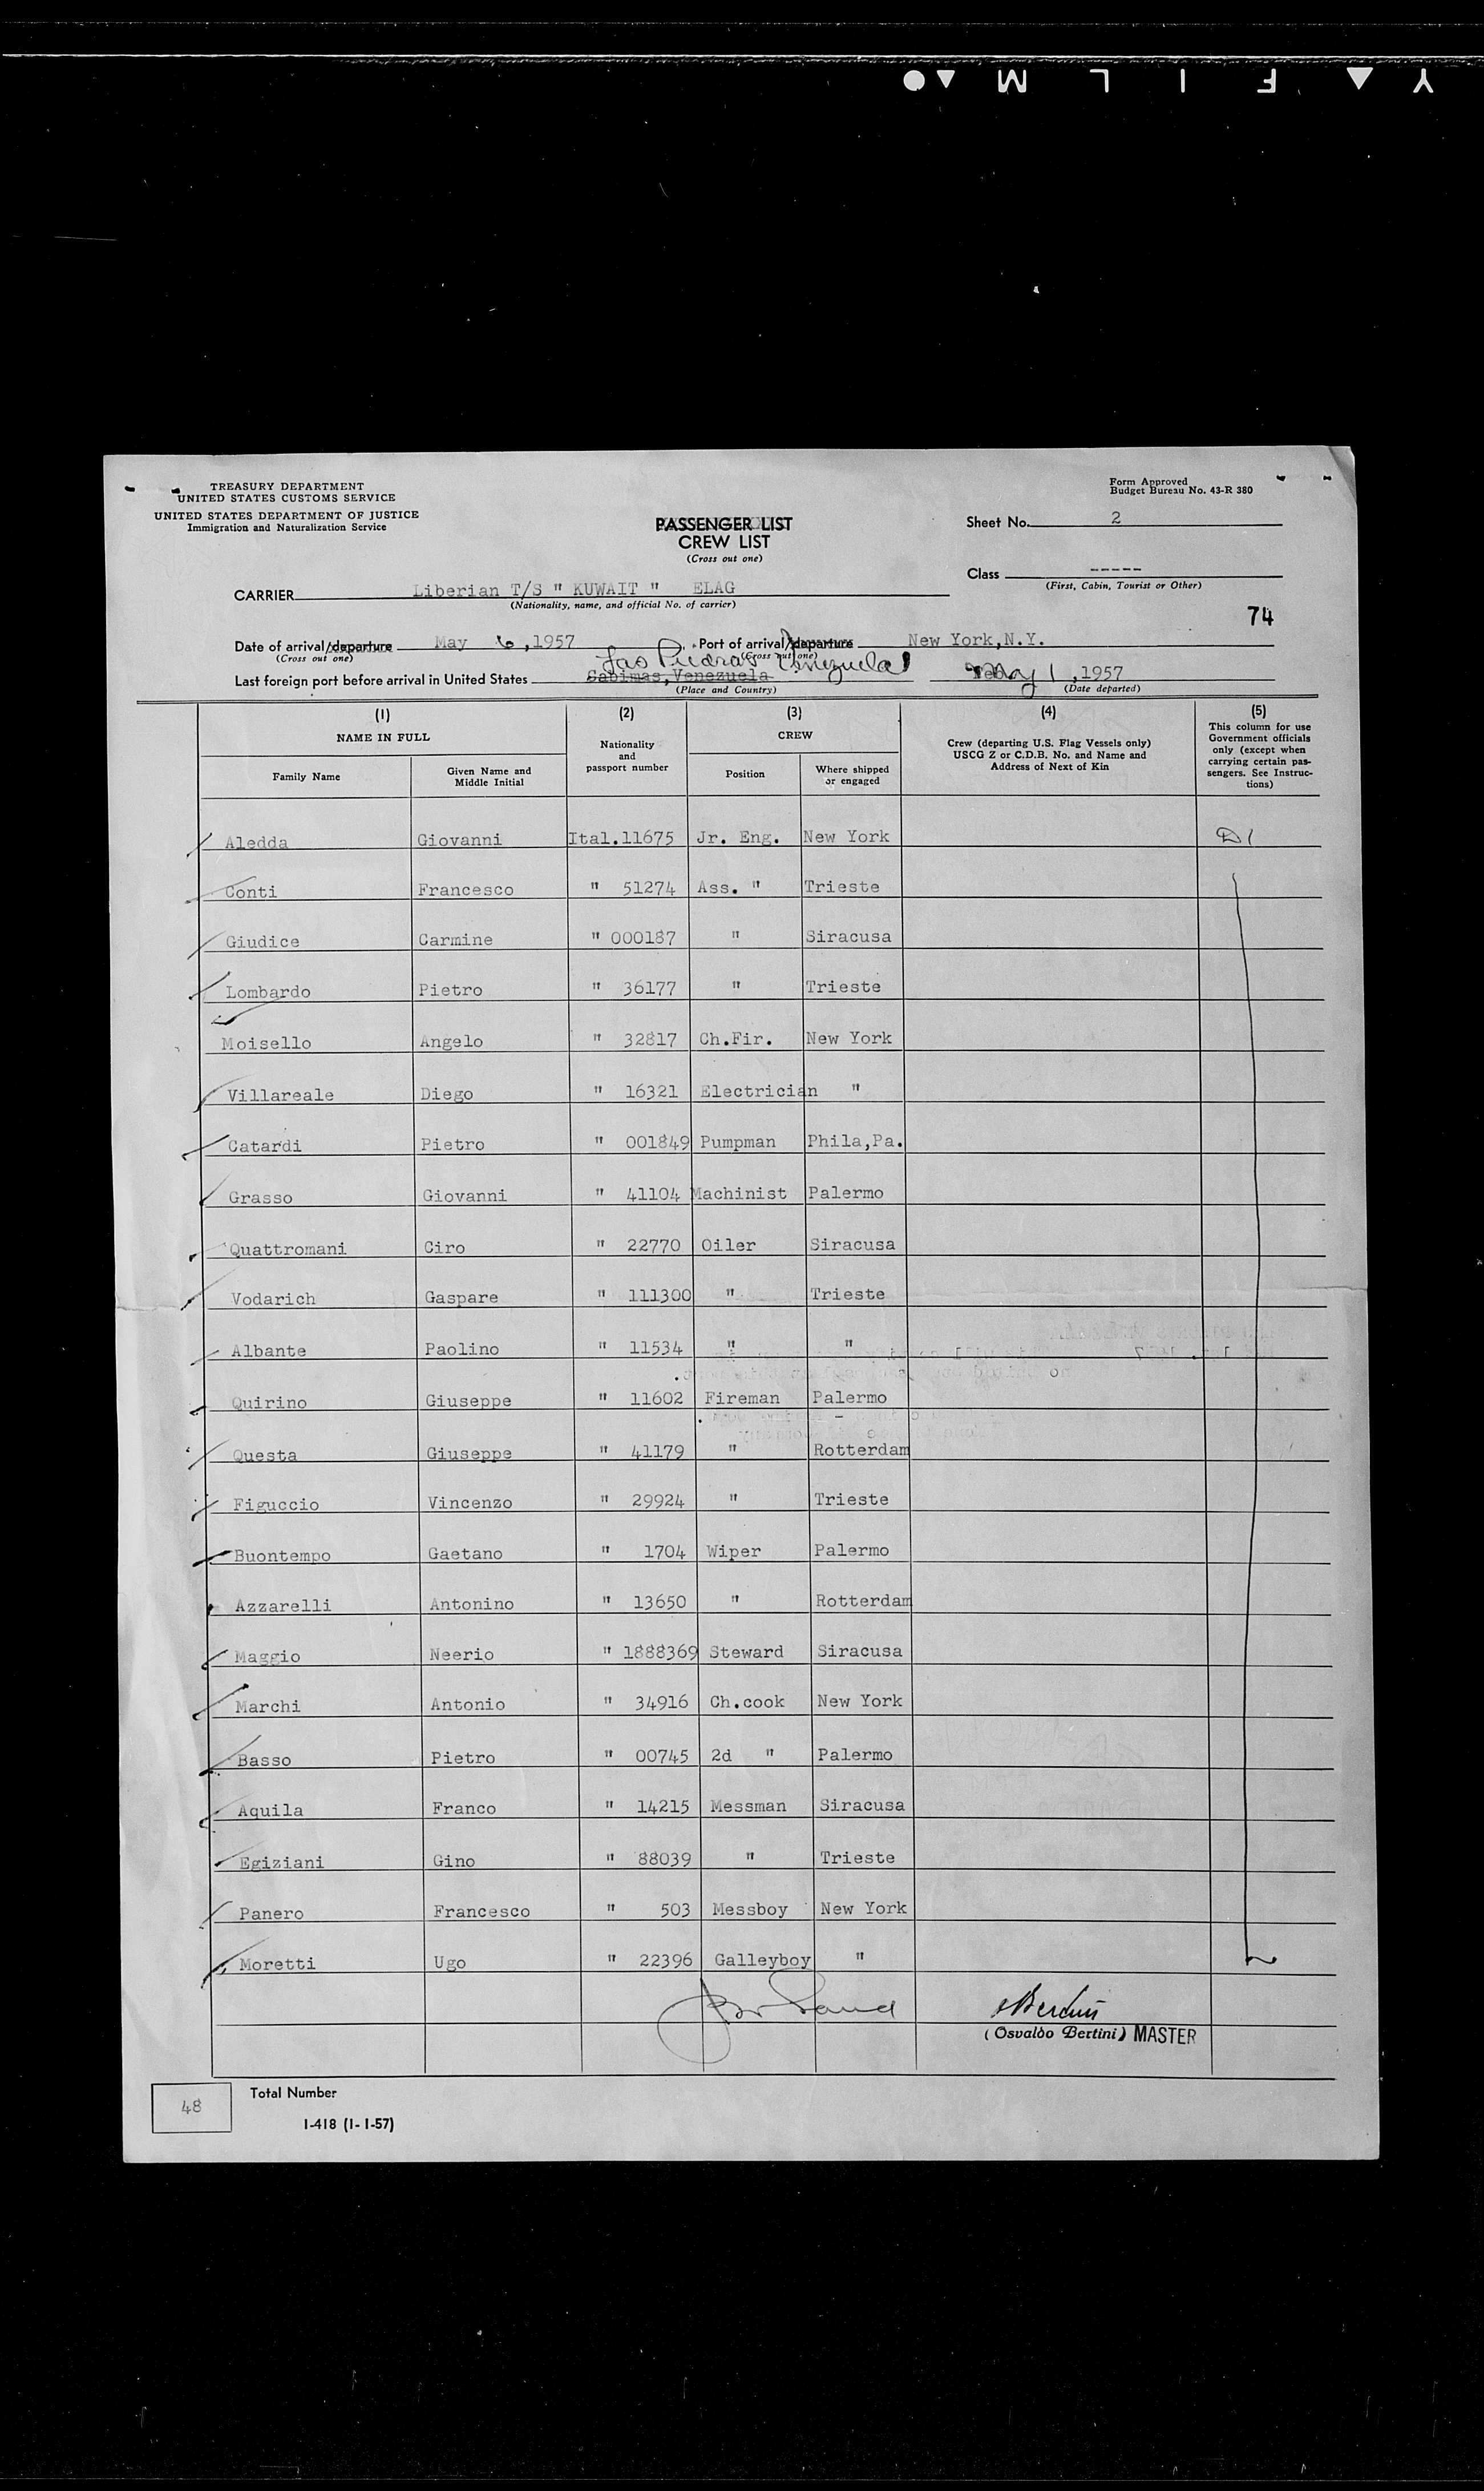 Y ▲ F I L M ▲●
TREASURY DEPARTMENT
UNITED STATES CUSTOMS SERVICE
UNITED STATES DEPARTMENT OF JUSTICE
Immigration and Naturalization Service
Form Approved
Budget Bureau No. 43-R 380
PASSENGER LIST
CREW LIST
(Cross out one)
Sheet No. 2
Class -----
(First, Cabin, Tourist or Other)
CARRIER Liberian T/S " KUWAIT " ELAG
(Nationality, name, and official No. of carrier)
74
Date of arrival/departure May 6, 1957 Port of arrival/departure New York,N.Y.
(Cross out one) (Cross out one)
Las Piedras Venezuela
Last foreign port before arrival in United States Cabimas,Venezuela May 1 ,1957
(Place and Country) (Date departed)
(1) (2) (3) (4) (5)
NAME IN FULL Nationality and passport number CREW Crew (departing U.S. Flag Vessels only) USCG Z or C.D.B. No. and Name and Address of Next of Kin This column for use Government officials only (except when carrying certain passengers. See Instructions)
Family Name Given Name and Middle Initial Position Where shipped or engaged
Aledda Giovanni Ital.11675 Jr. Eng. New York D1
Conti Francesco " 51274 Ass. " Trieste
Giudice Carmine " 000187 " Siracusa
Lombardo Pietro " 36177 " Trieste
Moisello Angelo " 32817 Ch.Fir. New York
Villareale Diego " 16321 Electrician "
Catardi Pietro " 001849 Pumpman Phila,Pa.
Grasso Giovanni " 41104 Machinist Palermo
Quattromani Ciro " 22770 Oiler Siracusa
Vodarich Gaspare " 111300 " Trieste
Albante Paolino " 11534 " "
Quirino Giuseppe " 11602 Fireman Palermo
Questa Giuseppe " 41179 " Rotterdam
Figuccio Vincenzo " 29924 " Trieste
Buontempo Gaetano " 1704 Wiper Palermo
Azzarelli Antonino " 13650 " Rotterdam
Maggio Neerio " 1888369 Steward Siracusa
Marchi Antonio " 34916 Ch.cook New York
Basso Pietro " 00745 2d " Palermo
Aquila Franco " 14215 Messman Siracusa
Egiziani Gino " 88039 " Trieste
Panero Francesco " 503 Messboy New York
Moretti Ugo " 22396 Galleyboy "
(Osvaldo Bertini) MASTER
48 Total Number
I-418 (1-1-57)